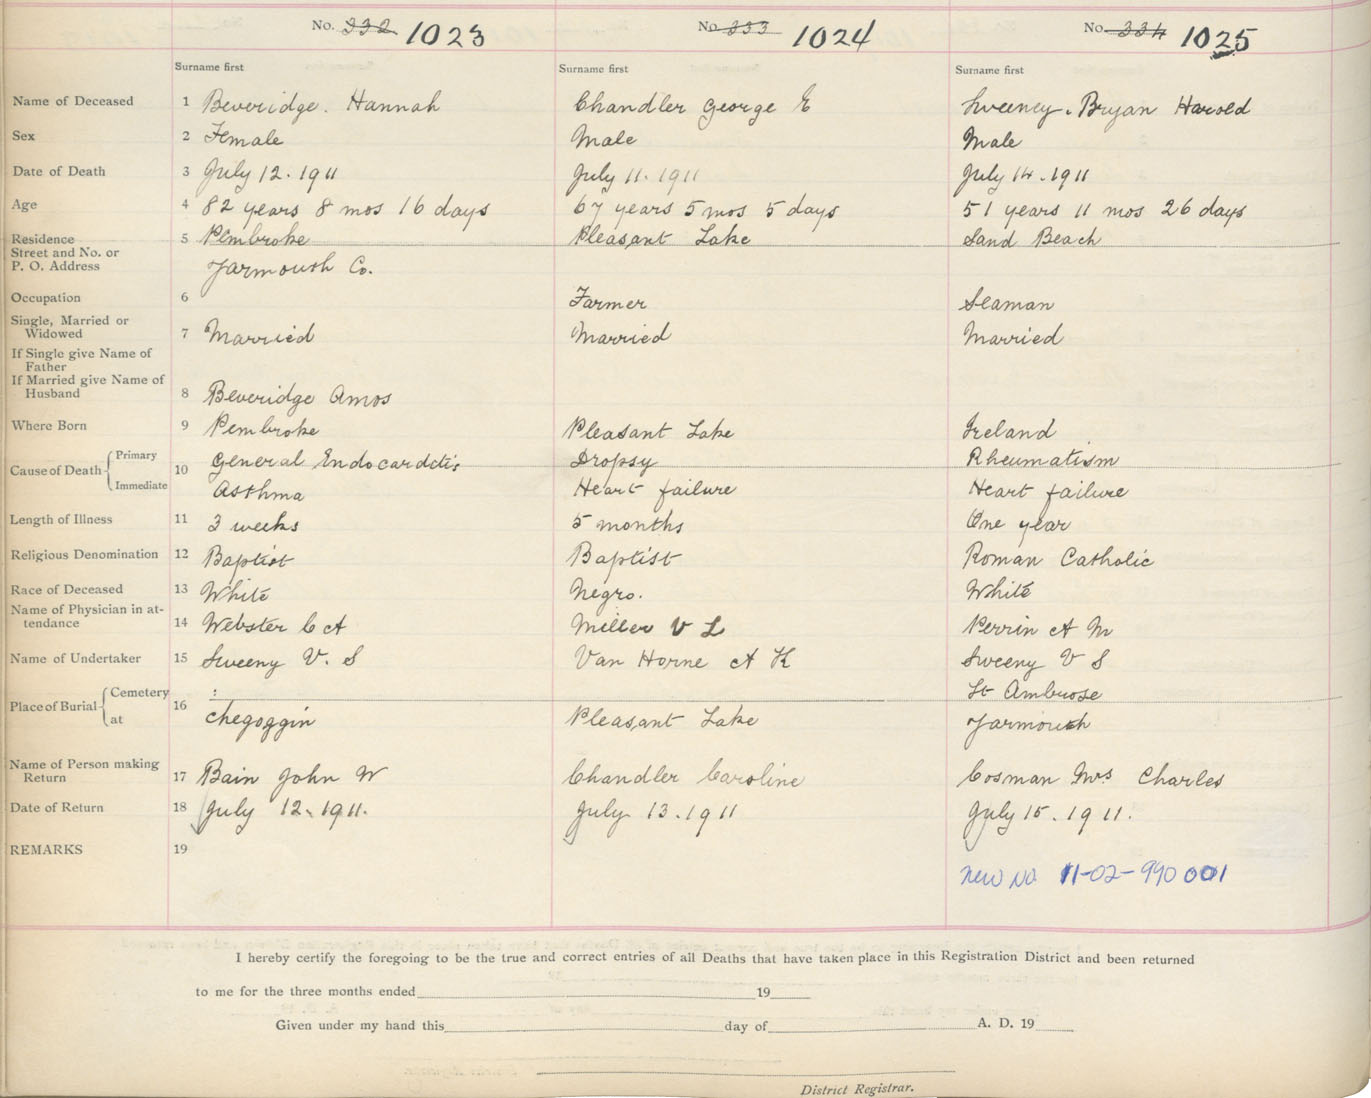 No. 332 1023 No 333 1024 No. 334 1025
Surname first Surname first Surname first
Name of Deceased 1 Beveridge. Hannah Chandler George E Sweeney. Bryan Harold
Sex 2 Female Male Male
Date of Death 3 July 12. 1911 July 11. 1911 July 14. 1911
Age 4 82 years 8 mos 16 days 67 years 5 mos 5 days 51 years 11 mos 26 days
Residence 5 Pembroke Pleasant Lake Sand Beach
Street and No. or
P. O. Address Yarmouth Co.
Occupation 6 Farmer Seaman
Single, Married or
Widowed 7 Married Married Married
If Single give Name of
Father
If Married give Name of
Husband 8 Beveridge Amos
Where Born 9 Pembroke Pleasant Lake Ireland
Cause of Death Primary 10 General Endocarditis Dropsy Rheumatism
Immediate Asthma Heart failure Heart failure
Length of Illness 11 3 weeks 5 months One year
Religious Denomination 12 Baptist Baptist Roman Catholic
Race of Deceased 13 White Negro. White
Name of Physician in at-
tendance 14 Webster C A Miller V L Perrin A M
Name of Undertaker 15 Sweeny V. S Van Horne A K Sweeny V S
Place of Burial Cemetery 16 St Ambrose
at Chegoggin Pleasant Lake Yarmouth
Name of Person making
Return 17 Bain John W Chandler Caroline Cosman Mrs Charles
Date of Return 18 July 12. 1911. July 13. 1911 July 15. 1911.
REMARKS 19
new no. 11-02-990001
I hereby certify the foregoing to be the true and correct entries of all Deaths that have taken place in this Registration District and been returned
to me for the three months ended 19
Given under my hand this day of A. D. 19
District Registrar.